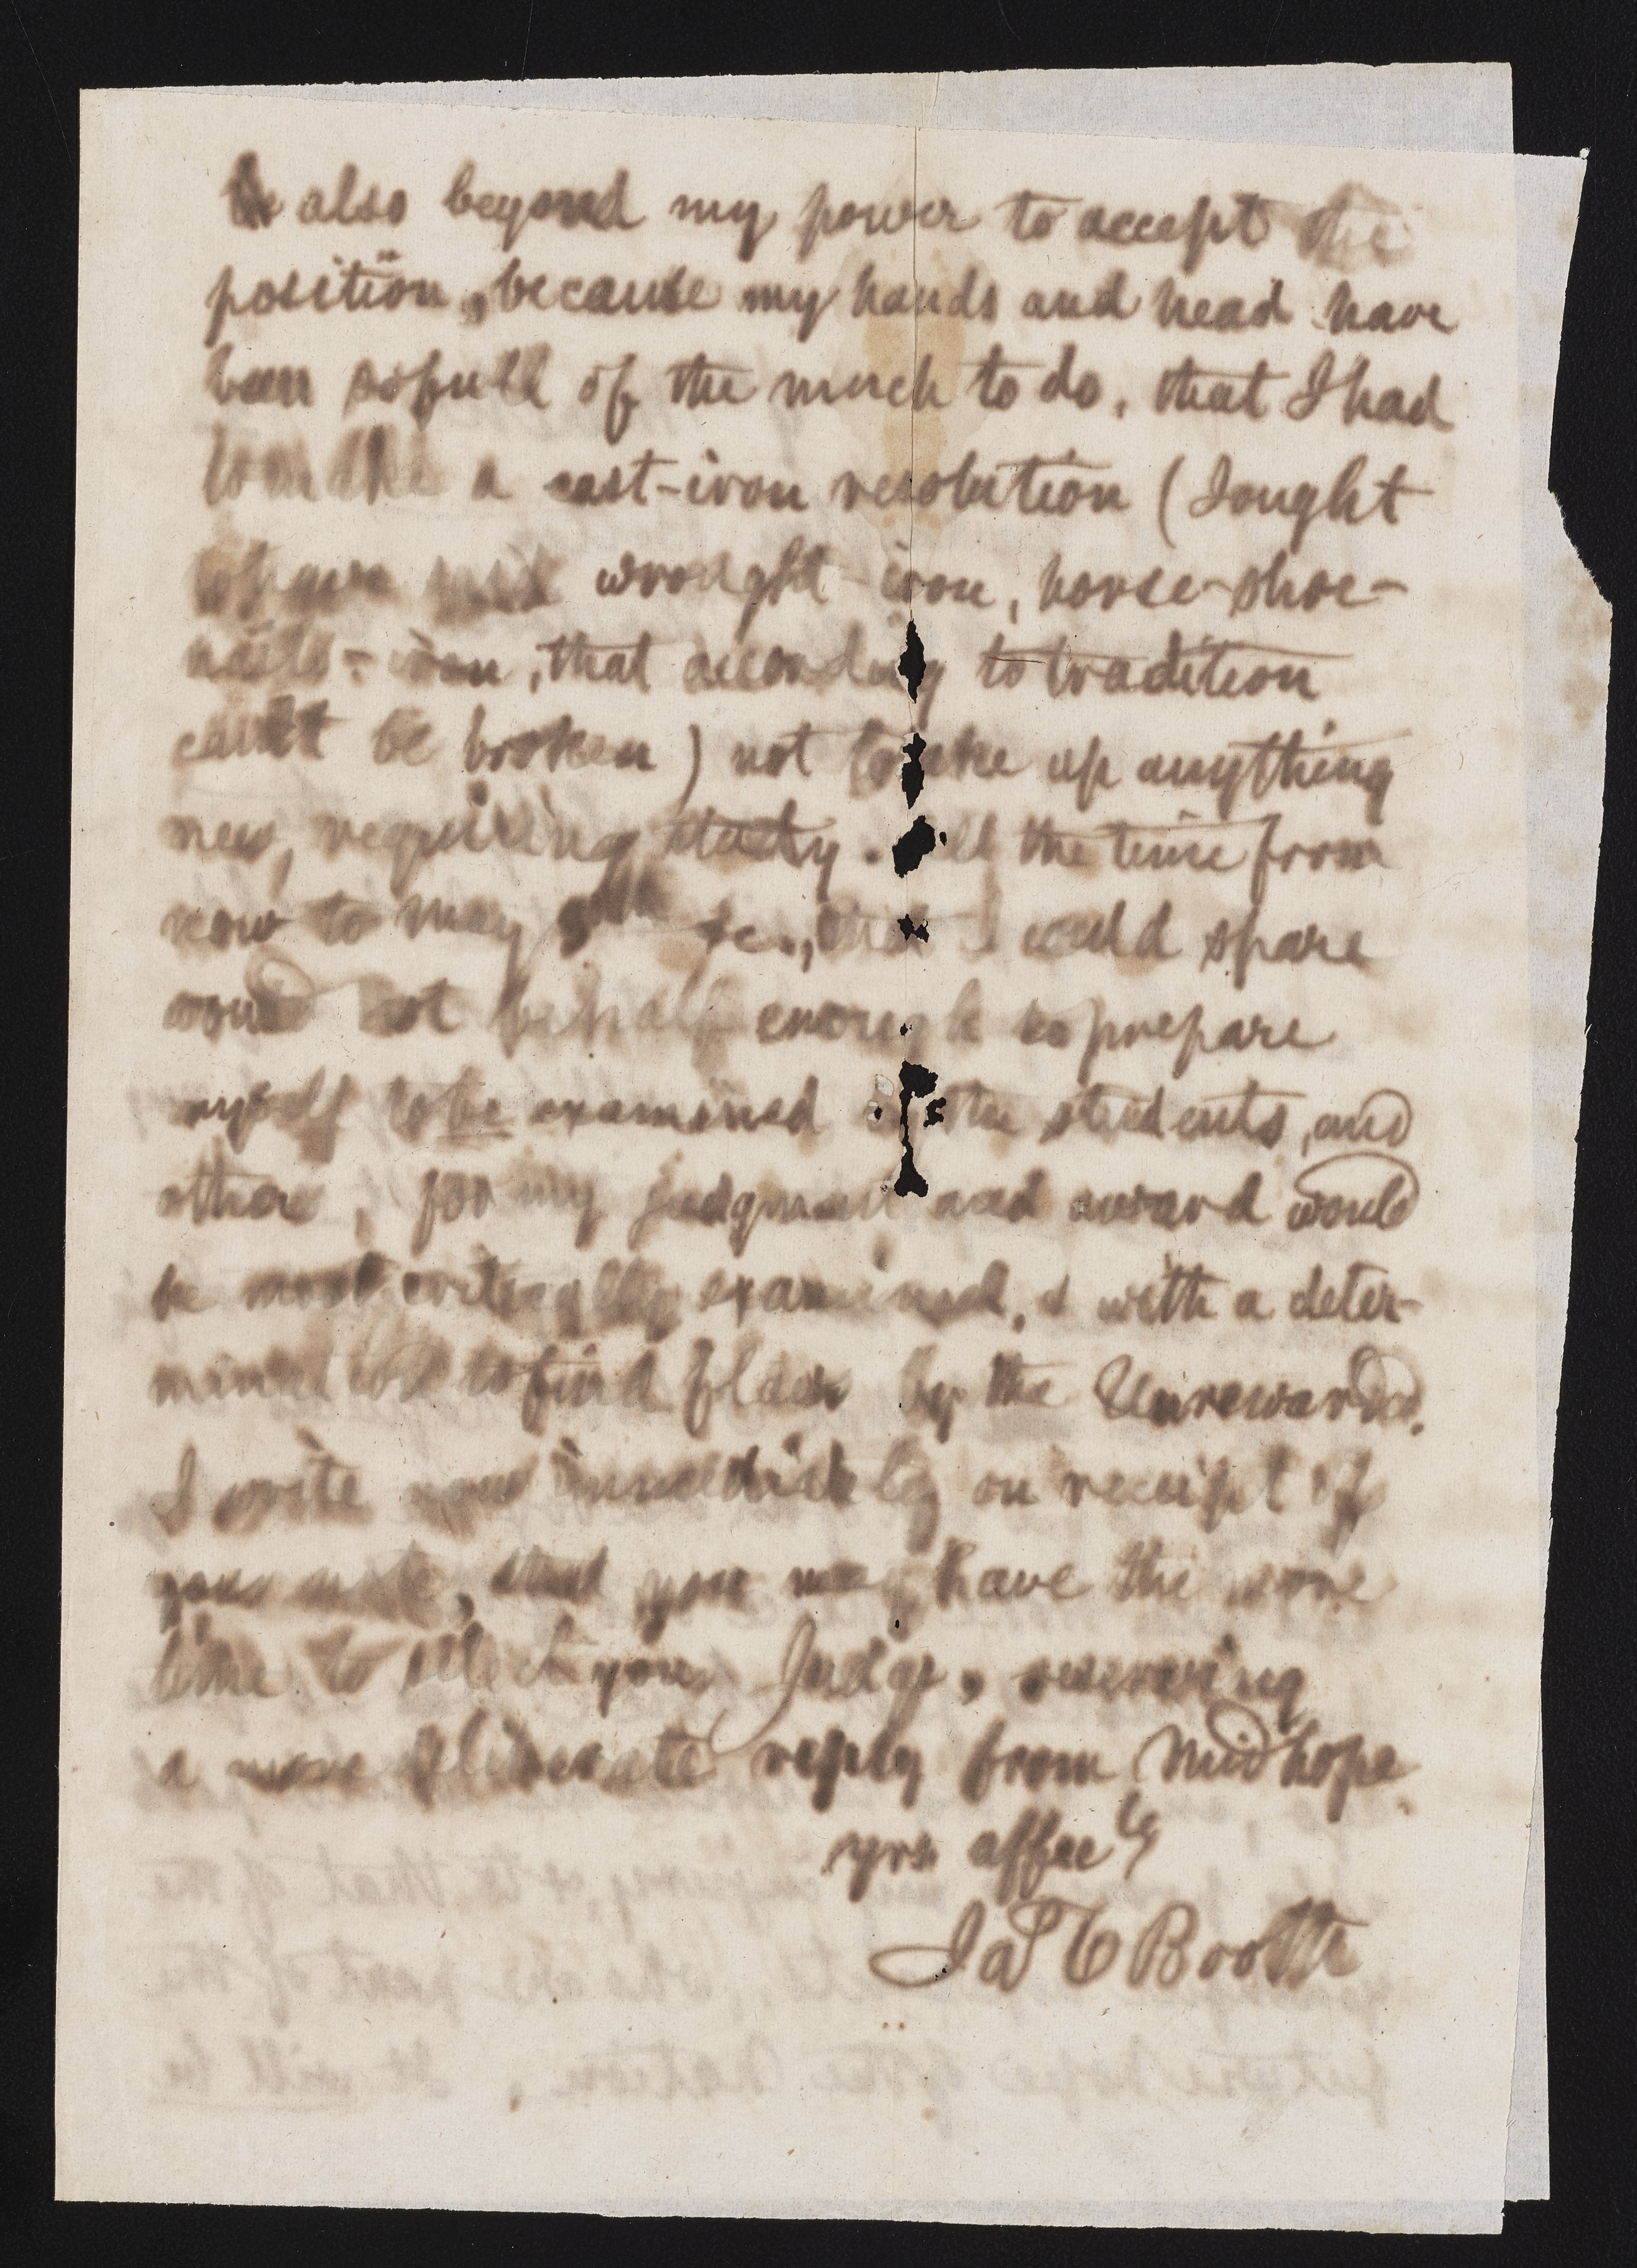 be also beyond my power to accept the
position, because my hands and head have
been so full of the much to do, that I had
to make a cast-iron resolution (I ought
to have said wrought-iron, horse-shoe-
nails-iron, that according to tradition
can't be broken) not to take up anything
new, requiring study. All the time from
now to May &c., that I could spare
would not be half enough to prepare
myself to be examined by the students, and
others, for my judgment and award would
be most critically examined, & with a deter-
mination to find flaws by the Unrewarded.
I write now immediately on receipt of
your note, that you may have the more
time to select your Judge, reserving
a more deliberate reply from Midhope.
yrs affecly
Jas C Booth